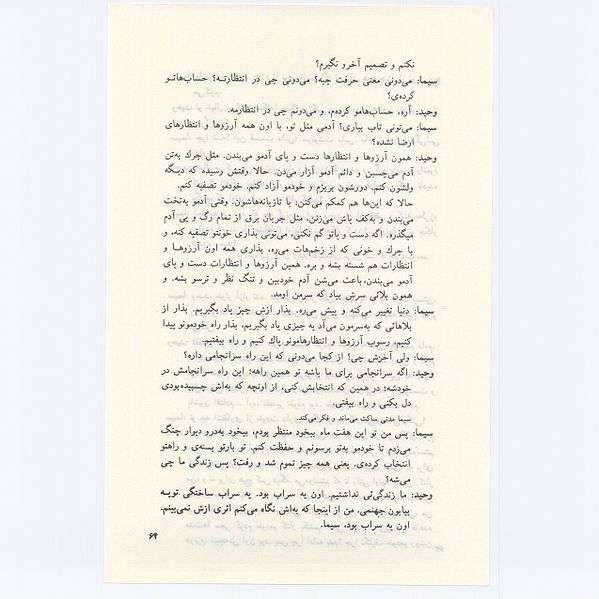 نکنم و تصمیم آخرو نگیرم؟
سیما: می‌دونی معنی حرفت چیه؟ می‌دونی چی در انتظارته؟ حساب‌هاتو
کرده‌ی؟
وحید: آره، حساب‌هامو کرده‌م، و می‌دونم چی در انتظارمه.
سیما: می‌تونی تاب بیاری؟ آدمی مثل تو، با اون همه آرزوها و انتظارهای
ارضا نشده؟
وحید: همون آرزوها و انتظارها دست و پای آدمو می‌بندن. مثل چرك به‌تن
آدم می‌چسبن و دائم آدمو آزار می‌دن. حالا وقتش رسیده که دیگه
ولشون کنم. دورشون بریزم و خودمو آزاد کنم. خودمو تصفیه کنم.
حالا که این‌ها هم کمکم می‌کنن؛ با تازیانه‌هاشون. وقتی آدمو به‌تخت
می‌بندن و به‌کف پاش می‌زنن، مثل جریان برق از تمام رگ و پی آدم
میگذره. اگه دست و پاتو گم نکنی، می‌تونی بذاری خونتو تصفیه کنه، و
با چرك و خونی که از زخم‌هات می‌ره، بذاری همه اون آرزوهـا و
انتظارات هم شسته بشه و بره. همین آرزوها و انتظارات دست و پای
آدمو می‌بندن، باعث می‌شن آدم خودبین و تنگ نظر و ترسو بشه. و
همون بلائی سرش بیاد که سرمن اومد.
سیما: دنیا تغییر می‌کنه و پیش می‌ره. بذار ازش چیز یاد بگیریم. بذار از
بلاهائی که به‌سرمون می‌آد یه چیزی یاد بگیریم، بذار راه خودمونو پیدا
کنیم، رسوب آرزوها و انتظارهامونو پاك کنیم و راه بیفتیم.
سیما: ولی آخرش چی؟ از کجا می‌دونی که این راه سرانجامی داره؟
وحید: اگه سرانجامی برای ما باشه تو همین راهه؛ این راه سرانجامش در
خودشه؛ در همین که انتخابش کنی. از اونچه که به‌اش چسبیده‌بودی
دل بکنی و راه بیفتی.
سیما مدتی ساکت می‌ماند و فکر می‌کند.
سیما: پس من تو این هفت ماه بیخود منتظر بودم، بیخود به‌درو دیوار چنگ
می‌زدم تا خودمو به‌تو برسونم و حفظت کنم. تو بارتو بستهی و راهتو
انتخاب کرده‌ی. یعنی همه چیز تموم شد و رفت؟ پس زندگی ما چی
می‌شه؟
وحید: ما زندگی‌ئی نداشتیم. اون یه سراب بود. یه سراب ساختگی تویـه
بیابون جهنمی. من از اینجا که به‌اش نگاه می‌کنم اثری ازش نمی‌بینم.
اون یه سراب بود، سیما.
۶۹